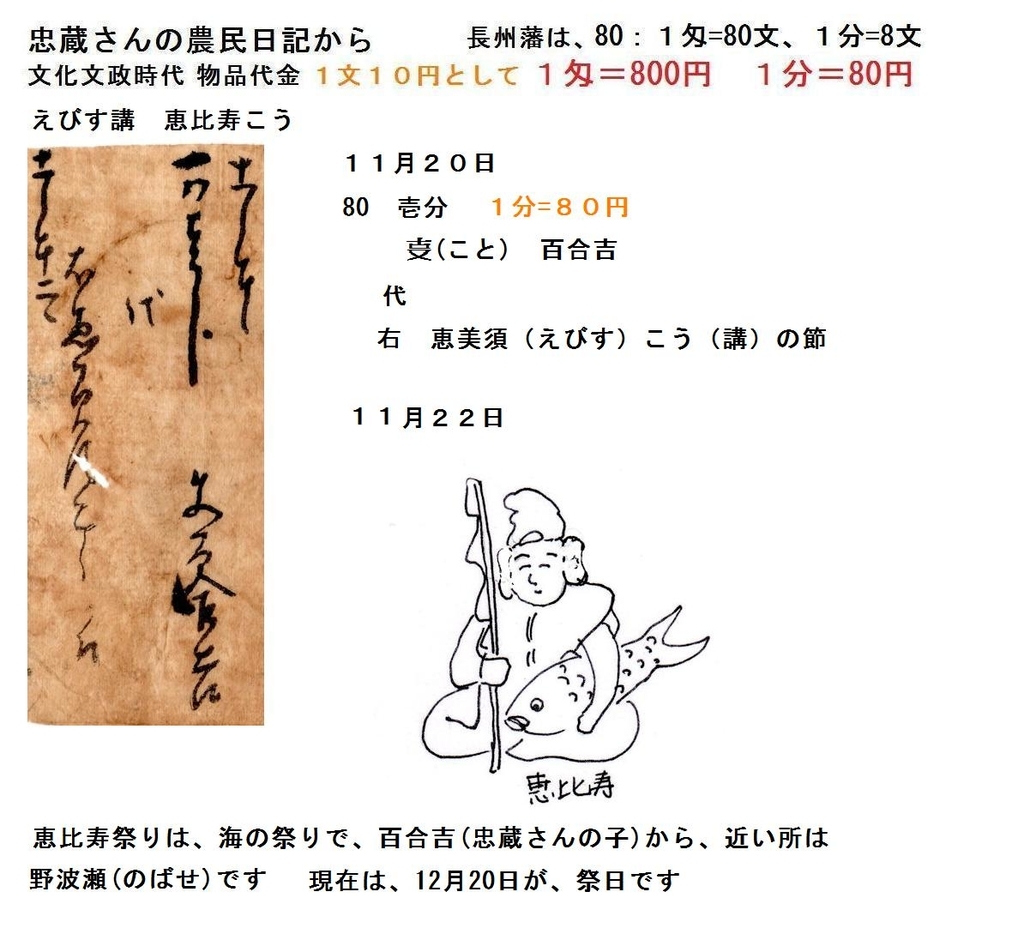 忠蔵さんの農民日記から　　　長州藩は、80：１匁=80文、１分=8文
文化文政時代 物品代金 １文１０円として １匁＝800円　１分＝80円
えびす講　恵比寿こう
１１月２０日
80　壱分　１分=８０円
(こと)　百合吉
代
右　恵美須（えびす）こう（講）の節
１１月２２日
恵比寿
恵比寿祭りは、海の祭りで、百合吉(忠蔵さんの子)から、近い所は
野波瀬(のばせ)です　現在は、12月20日が、祭日です